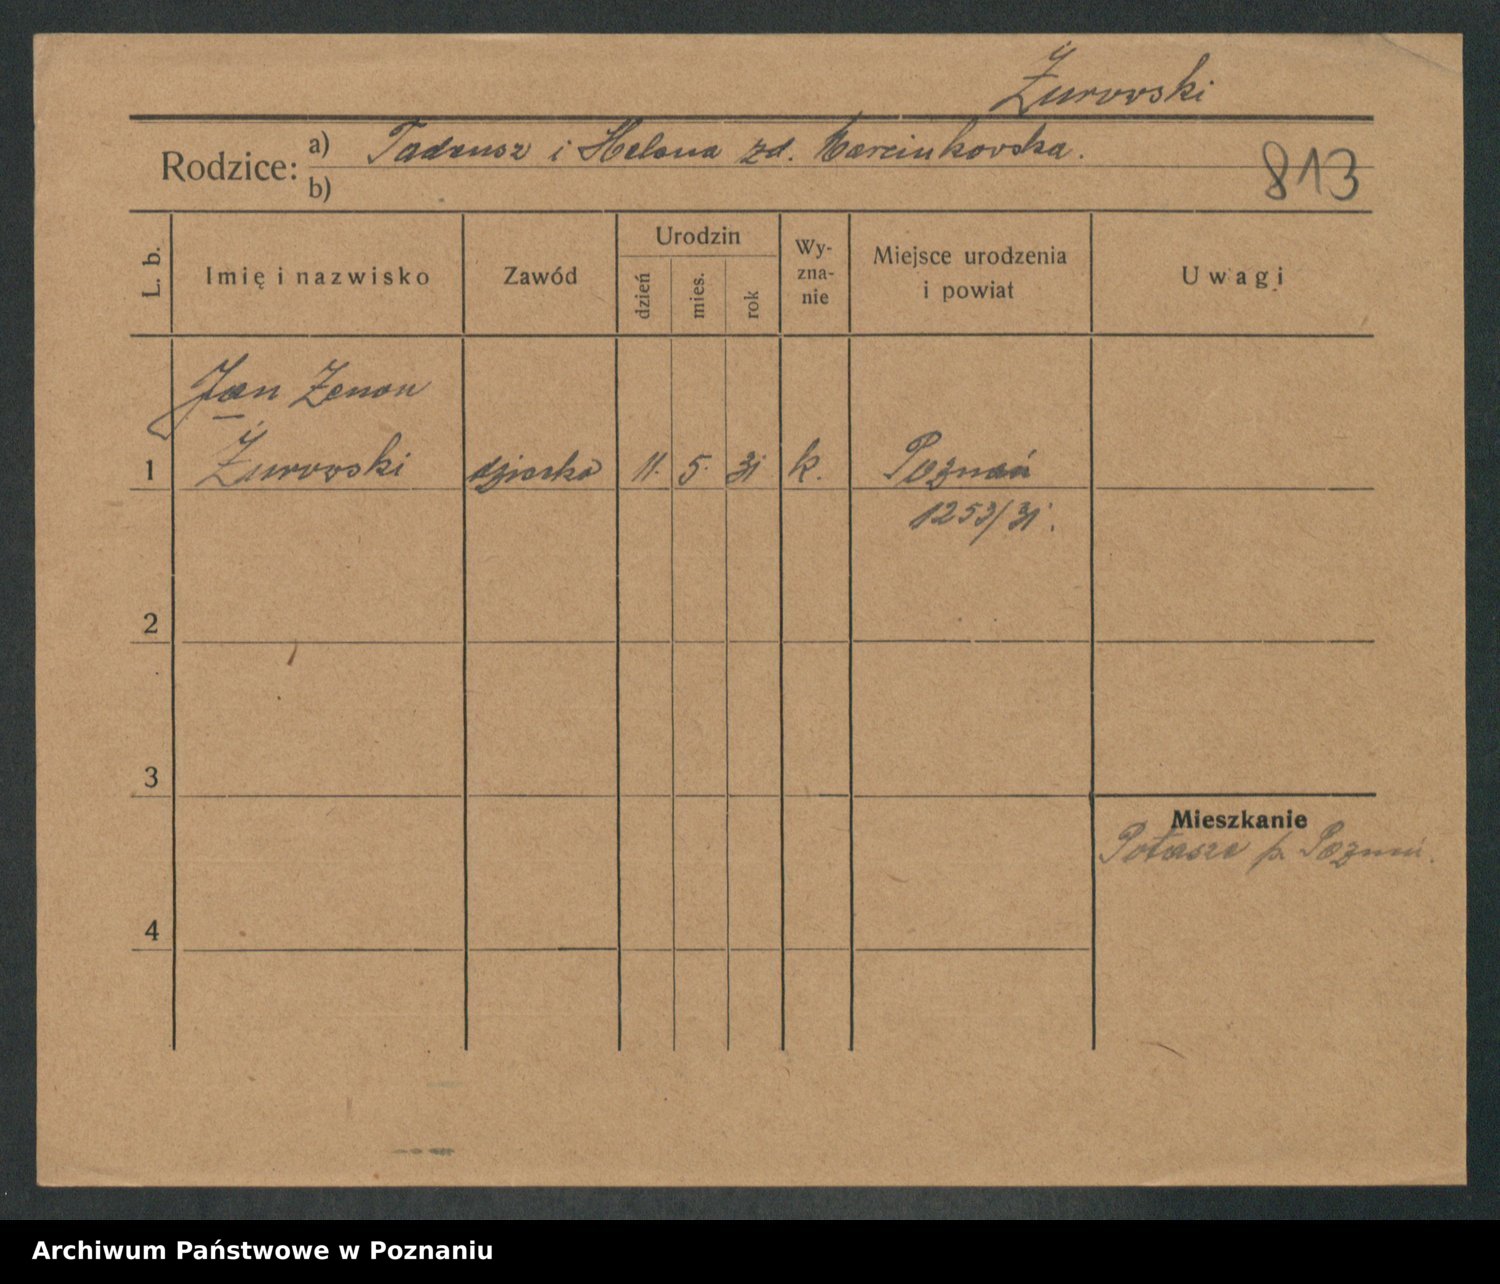 Żurowski
Rodzice: a) Tadeusz i Helena zd. Marcinkowska.
b)
813
L. b.
Imię i nazwisko
Zawód
Urodzin
dzień
mies.
rok
Wy-
zna-
nie
Miejsce urodzenia
i powiat
Uwagi
Jan Zenon
1 Żurowski dziecko 11. 5. 31 k. Poznań
1253/31.
2
3
Mieszkanie
Potasze p. Poznań.
4
Archiwum Państwowe w Poznaniu